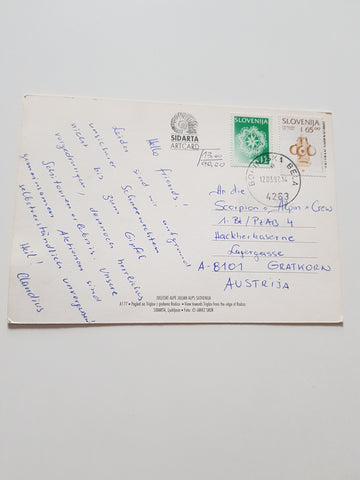 SIDARTA
ARTCARD
SLOVENIJA
SLOVENIJA
65.00
12.03.97.14
4263
Hello friends!
Leider sind wir aufgrund
unsicherer Schneewächten
nicht bis zum Gipfel
vorgedrungen, dennoch herrliches
Schitourenerlebnis. Unsere
gemeinsamen Aktionen sind
selbstverständlich unvergessen!
Heil! Claudius
An die
Scorpion + Alpin-Crew
1. Bt/PzAB 4
Hackherkaserne
Lagergasse
A-8101 GRATKORN
AUSTRIJA
JULIJSKE ALPE JULIAN ALPS SLOVENIJA
A177 • Pogled na Triglav z grebena Rodice. • View towards Triglav from the edge of Rodica.
SIDARTA, Ljubljana • Foto: © JANEZ SKOK